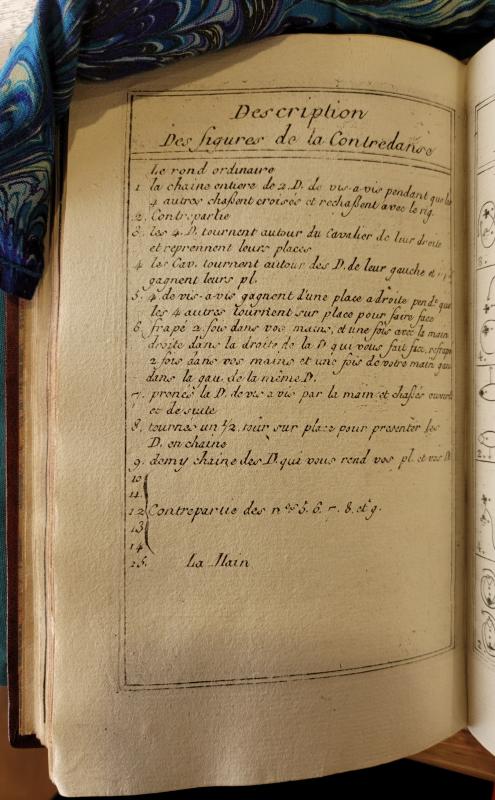 Description
Des figures de la Contredanse
Le rond ordinaire
1. la chaine entiere de 2. D. de vis-a-vis pendant que les
4 autres chassent croisés et rechassent avec le rig.
2. Contrepartie
3. les 4. D. tournent autour du Cavalier de leur droite
et reprennent leurs places
4. les Cav. tournent autour des D. de leur gauche et
gagnent leurs pl.
5. 4. de vis-avis gagnent d'une place a droite pend.t que
les 4 autres tournent sur place pour faire face
6. frapé 2. fois dans vos mains, et une fois avec la main
droite dans la droite de la D qui vous fait face, refrapé
2 fois dans vos mains et une fois de votre main gau
dans la gau. de la même D.
7. prenés la D. de vis a vis par la main et chassés ouverts
et de suite
8. tournés un 1/2. tour sur place pour presenter les
D. en chaine
9. demy chaine des D. qui vous rend vos pl. et vos D.
10
11.
12 Contrepartie des n.os 5. 6. 7. 8. et 9.
13
14
15. La Main